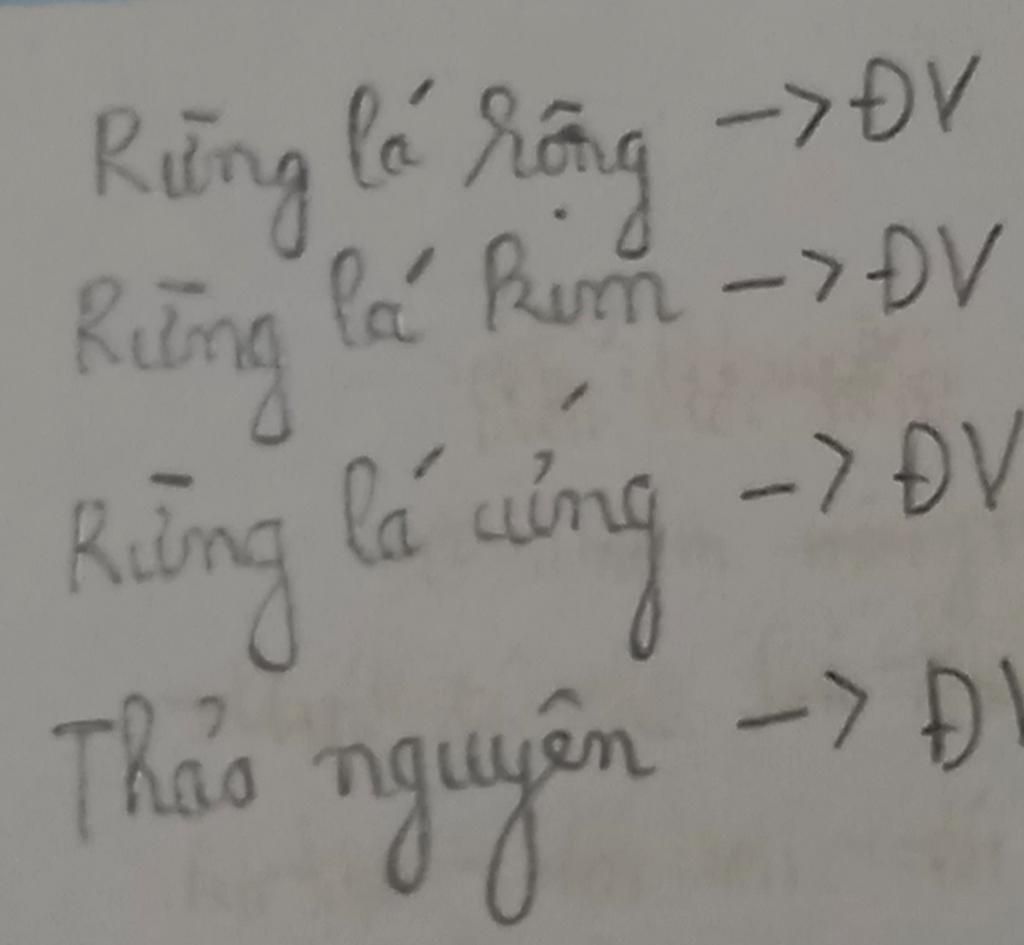 Rừng lá rộng -> ĐV
Rừng lá kim -> ĐV
Rừng lá cứng -> ĐV
Thảo nguyên -> ĐV